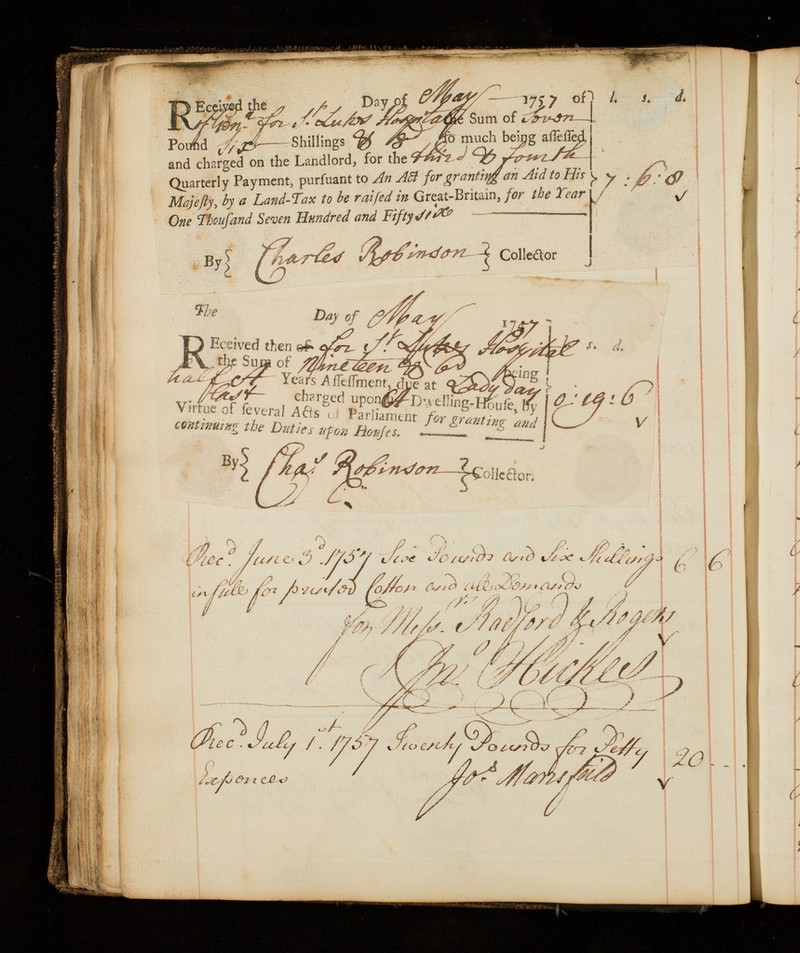 REceived the Day of May 1757 of l. s. d.
for St. Lukes Hospital the Sum of Seven
Pound Six Shillings & 8d so much being assessed
and charged on the Landlord, for the third & fourth
Quarterly Payment, pursuant to An Act for granting an Aid to His 7 : 6 : 8
Majesty, by a Land-Tax to be raised in Great-Britain, for the Year
One Thousand Seven Hundred and Fifty six
By Charles Robinson Collector
The Day of May 1757
REceived then of for St. Lukes Hospital s. d.
the Sum of Nineteen & 6d being
half A Years Assessment, due at Lady day
last charged upon Dwelling-House, by 0 : 19 : 6
Virtue of several Acts of Parliament for granting and
continuing the Duties upon Houses.
By Chas. Robinson Collector.
Recd. June 3d. 1757 Six Pounds and Six Shillings 6 6
in full for printed Cotton and all Demands
for Messrs. Radford & Rogers
Jno. Hickes
Recd. July 1st. 1757 Twenty Pounds for Petty 20 - -
Expences Jos. Mansfield